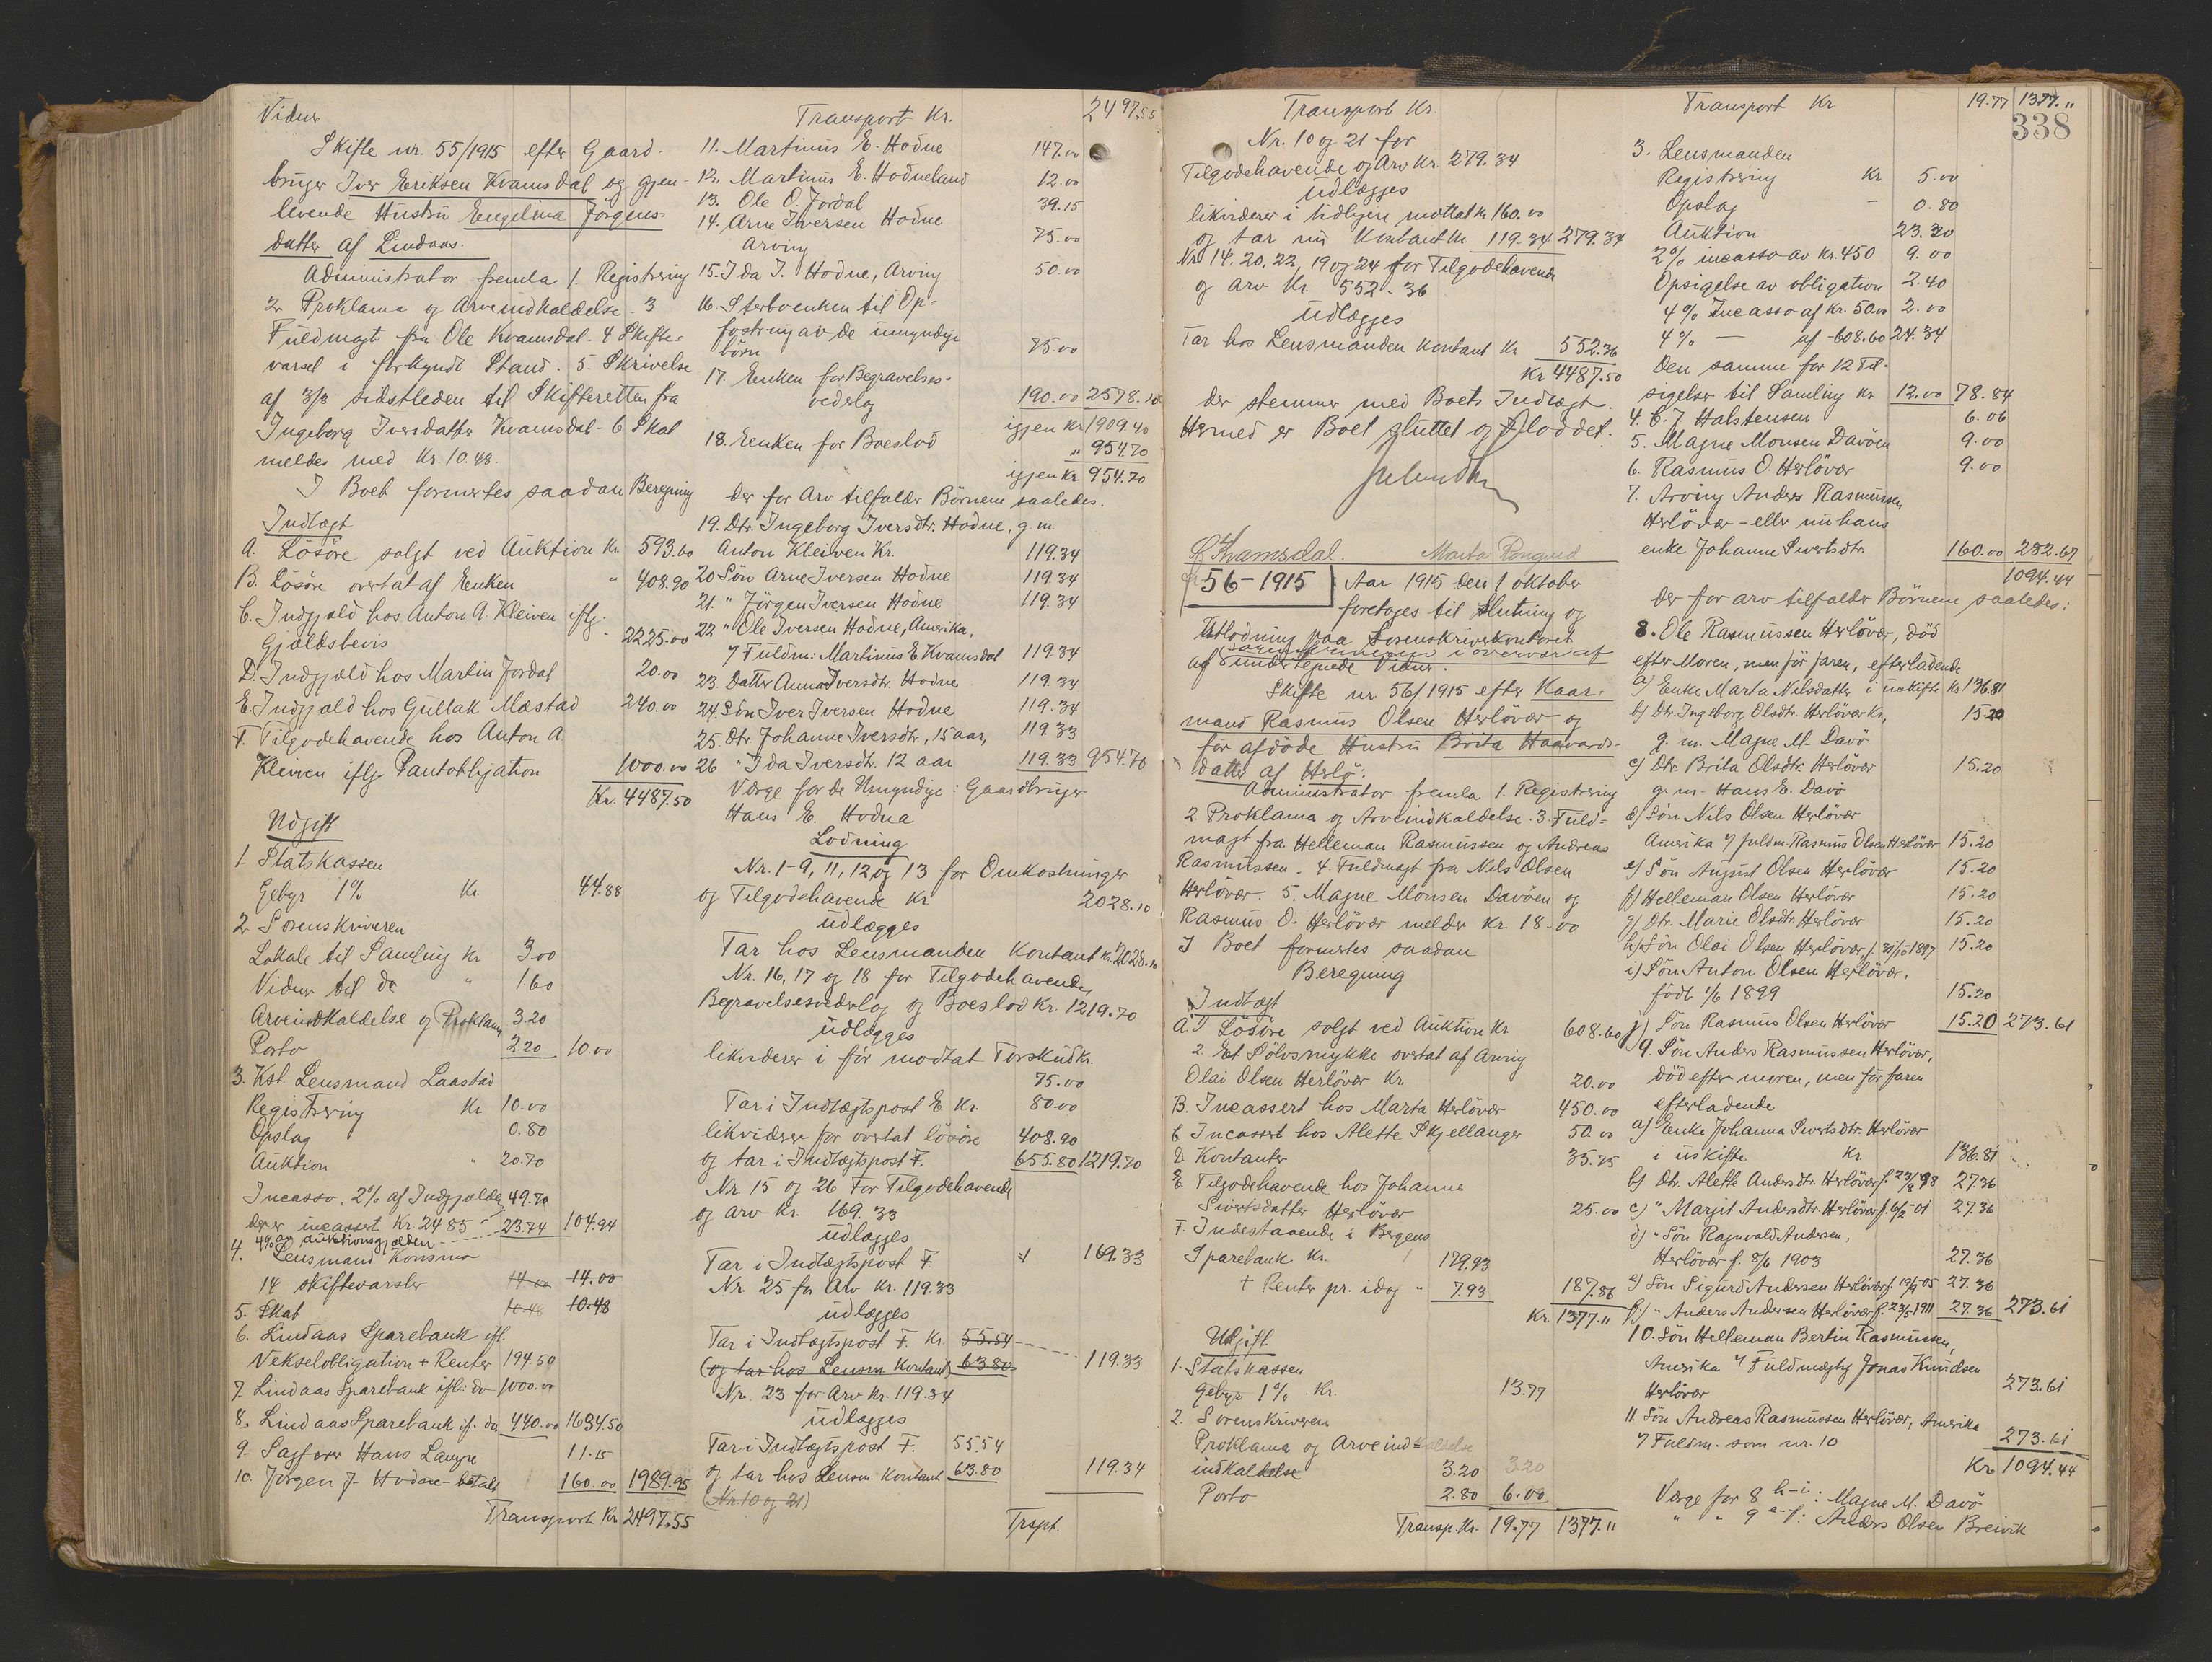 Vidner
Skifte nr. 55/1915 efter Gaard-
bruger Iver Eriksen Kvamsdal og gjen-
levende Hustru Engelina Jörgens-
datter af Lindaas.
Administrator fremla 1. Registrering
2. Proklama og Arveindkaldelse. 3
Fuldmagt fra Ole Kvamsdal. 4 Skifte-
varsel i forkyndt Stand. 5. Skrivelse
af 3/3 sidstleden til Skifteretten fra
Ingeborg Iversdatter Kvamsdal - 6 Skat
meldes med Kr. 10.48.
I Boet formertes saadan Beregning
Indtægt
A. Lösöre solgt ved Auktion Kr. 593.60
B. Lösöre overtat af Enken " 408.90
C. Indgjæld hos Anton A. Kleiven iflg.
Gjældsbevis " 2225.00
D. Indgjæld hos Martin Jordal 20.00
E. Indgjæld hos Gullak Mæstad 240.00
F. Tilgodehavende hos Anton A.
Kleiven iflg. Pantobligation 1000.00
Kr. 4487.50
Udgift
1. Statskassen
Gebyr 1% Kr. 44.88
2. Sorenskriveren
Lokale til Samling Kr 3.00
Vidner til do " 1.60
Arveindkaldelse og Proklama 3.20
Porto 2.20 10.00
3. Kst. Lensmand Laastad
Registrering Kr 10.00
Opslag 0.80
Auktion " 20.70
Incasso. 2% af Indgjælden 49.70
der er incassert Kr. 2485 -
4% av auktionsgjælden 23.74 104.94
4. Lensmand Konsmo
14 skiftevarsler 14.00 14.00
5. Skat 10.48 10.48
6. Lindaas Sparebank ifl.
Vekselobligation + Renter 194.50
7. Lindaas Sparebank ifl. do 1000.00
8. Lindaas Sparebank if. do 440.00 1634.50
9. Sagförer Hans Langre 11.15
10. Jörgen J. Hodne - betalt 160.00 1989.95
Transport Kr. 2497.55
Transport Kr. 2497.55
11. Martinus E. Hodne 147.00
12. Martinus E. Hodneland 12.00
13. Ole O. Jordal 39.15
14. Arne Iversen Hodne
Arving 75.00
15. Ida I. Hodne, Arving 50.00
16. Sterboenken til Op-
fostring av de umyndige
börn 75.00
17. Enken for Begravelses-
vederlag 190.00 2578.10
igjen Kr 1909.40
18. Enken for Boeslod " 954.70
igjen Kr. 954.70
der for Arv tilfalder Börnene saaledes.
19. Dtr. Ingeborg Iversdtr. Hodne, g. m.
Anton Kleiven Kr. 119.34
20 Sön Arne Iversen Hodne 119.34
21. " Jörgen Iversen Hodne 119.34
22 " Ole Iversen Hodne, Amerika,
Fuldm: Martinus E. Kvamsdal 119.34
23. Datter Anna Iversdtr. Hodne 119.34
24. Sön Iver Iversen Hodne 119.34
25. Dtr. Johanne Iversdtr, 15 aar, 119.33
26 " Ida Iversdtr. 12 aar 119.33 954.70
Værge for de Umyndige: Gaardbruger
Hans E. Hodna
Lodning
Nr. 1-9, 11, 12 og 13 for Omkostninger
og Tilgodehavende Kr. 2028.10
udlægges
Tar hos Lensmanden Kontant Kr. 2028.10
Nr. 16, 17 og 18 for Tilgodehavende,
Begravelsesvederlag og Boeslod Kr. 1219.70
udlægges
likviderer i för modtat Torskud kr.
75.00
Tar i Indtægtspost E Kr. 80.00
likviderer for overtat lösöre 408.90
og tar i Indtægtspost F. 655.80 1219.70
Nr. 15 og 26 For Tilgodehavende
og arv Kr. 169.33
udlægges
Tar i Indtægtspost F 169.33
Nr. 25 for Arv Kr. 119.33
udlægges
Tar i Indtægtspost F. Kr. 55.54
(og tar hos Lensm. Kontant) 63.80 119.33
Nr. 23 for Arv Kr. 119.34
udlægges
Tar i Indtægtspost F. 55.54
og tar hos Lensm. Kontant 63.80 119.34
(Nr. 10 og 21)
Trspt.
Transport Kr.
Nr. 10 og 21 for
Tilgodehavende og Arv Kr. 279.34
udlægges
likviderer i tidligere mottat Kr 160.00
og tar nu Kontant Kr. 119.34 279.34
Nr 14. 20. 22, 19 og 24 for Tilgodehavende
og arv Kr. 552.36
udlægges
Tar hos Lensmanden Kontant Kr 552.36
Kr 4487.50
der stemmer med Boets Indtægt.
Hermed er Boet sluttet og Utloddet.
Kvamsdal.
56-1915
Aar 1915 den 1 oktober
foretoges til Slutning og
Utlodning paa Sorenskriverkontoret
i overvær af
af undertegnede Vidner.
Skifte nr. 56/1915 efter Kaar-
mand Rasmus Olsen Herlövær og
för afdöde Hustru Brita Haavards-
datter af Herlö.
Administrator fremla 1. Registrering
2. Proklama og Arveindkaldelse. 3. Fuld-
magt fra Helleman Rasmussen og Andreas
Rasmussen. 4. Fuldmagt fra Nils Olsen
Herlövær. 5. Magne Monsen Davöen og
Rasmus O. Herlövær melder Kr. 18.00
I Boet formertes saadan
Beregning
Indtægt
A. 1 Lösöre solgt ved Auktion Kr. 608.60
2. Et Sölvsmykke overtat af Arving
Olai Olsen Herlövær Kr. 20.00
B. Incassert hos Marta Herlövær 450.00
C. Incassert hos Alette Skjellanger 50.00
D. Kontanter 35.75
E. Tilgodehavende hos Johanne
Sivertsdatter Herlövær 25.00
F. Indestaaende i Bergens
Sparebank Kr. 179.93
+ Renter pr. idag " 7.93 187.86
Kr. 1377.11
Udgift
1. Statskassen
Gebyr 1% Kr. 13.77
2. Sorenskriveren
Proklama og Arveindkaldelse
indkaldelse 3.20 3.20
Porto 2.80 6.00
Transp. Kr. 19.77 1377.11
Transport Kr 19.77 1377.11
338
3. Lensmanden
Registrering Kr 5.00
Opslag - 0.80
Auktion 23.30
2% incasso av kr. 450 9.00
Opsigelse av obligation 2.40
4% Incasso af Kr. 50.00 2.00
4% — af - 608.60 24.34
Den samme for 12 Til-
sigelser til Samling Kr 12.00 78.84
4. C. J. Halstensen 6.06
5. Magne Monsen Davöen 9.00
6. Rasmus O. Herlövær 9.00
7. Arving Anders Rasmussen
Herlövær - eller nu hans
enke Johanne Sivertsdtr. 160.00 282.67
1094.44
der for arv tilfalder Börnene saaledes:
8. Ole Rasmussen Herlövær, död
efter Moren, men för faren, efterladende
a) Enke Marta Nilsdatter i uskifte Kr 136.81
b) Dtr. Ingeborg Olsdtr. Herlövær Kr, 15.20
g. m. Magne M. Davö
c) Dtr. Brita Olsdtr. Herlövær 15.20
g. m. Hans E. Davö
d) Sön Nils Olsen Herlövær
Amerika fuldm. Rasmus Olsen Herlövær 15.20
e) Sön August Olsen Herlövær 15.20
f) Helleman Olsen Herlövær 15.20
g) Dtr. Marie Olsdtr Herlövær 15.20
h) Sön Olai Olsen Herlövær, f. 31/10 1897 15.20
i) Sön Anton Olsen Herlövær,
födt 1/6 1899 15.20
j) Sön Rasmus Olsen Herlövær 15.20 273.61
9. Sön Anders Rasmussen Herlövær,
död efter moren, men för faren
efterladende
a) Enke Johanna Sivertsdtr. Herlövær
i uskifte Kr 136.81
b) Dtr. Aleth Andersdtr. Herlövær f. 23/8 98 27.36
c) " Margit Andersdtr. Herlövær f. 6/2 01 27.36
d) " Sön Ragnvald Andersen,
Herlövær f. 8/6 1903 27.36
e) Sön Sigurd Andersen Herlövær f. 19/9 05 27.36
f) " Anders Andersen Herlövær f. 23/5 1911 27.36 273.61
10. Sön Helleman Bertin Rasmussen,
Amerika Fuldmægtig Jonas Knudsen
Herlövær 273.61
11. Sön Andreas Rasmussen Herlövær, Amerika
Fuldm. som nr. 10 273.61
Kr 1094.44
Værge for 8 h-i: Magne M. Davö
" " 9 e-f: Anders Olsen Breivik